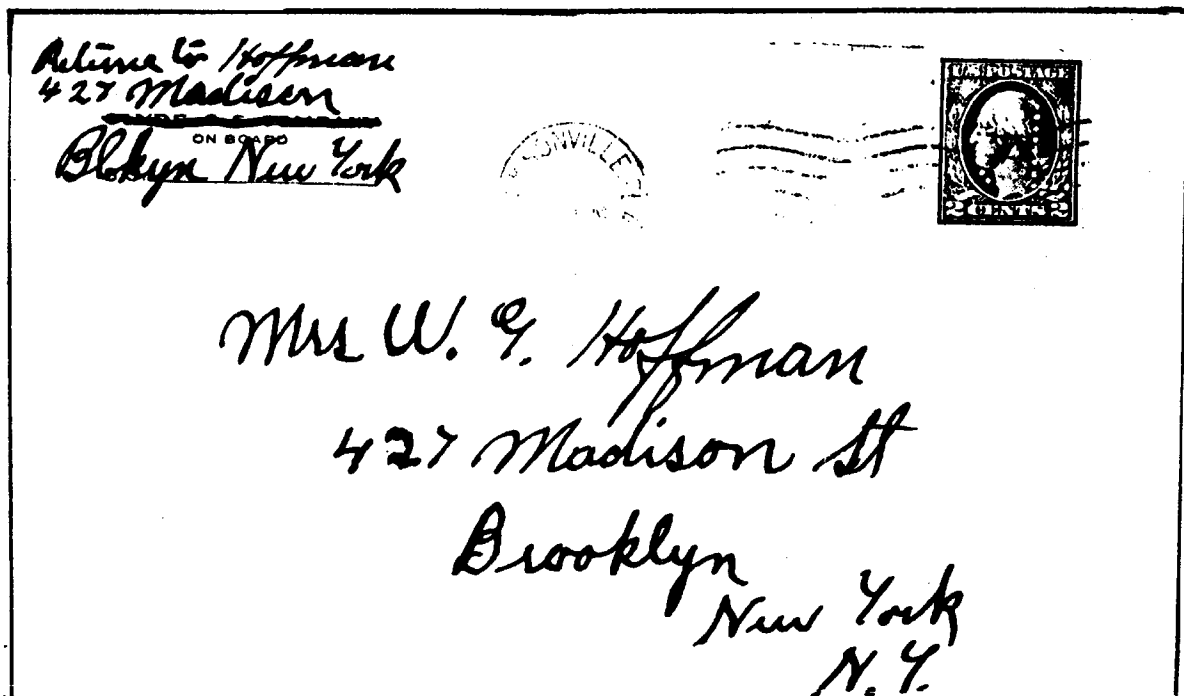 Return to Hoffman
427 Madison
ON BOARD
Bklyn New York
SONVILLE
U.S. POSTAGE
2 CENTS 2
Mrs W. G. Hoffman
427 Madison St
Brooklyn
New York
N.Y.